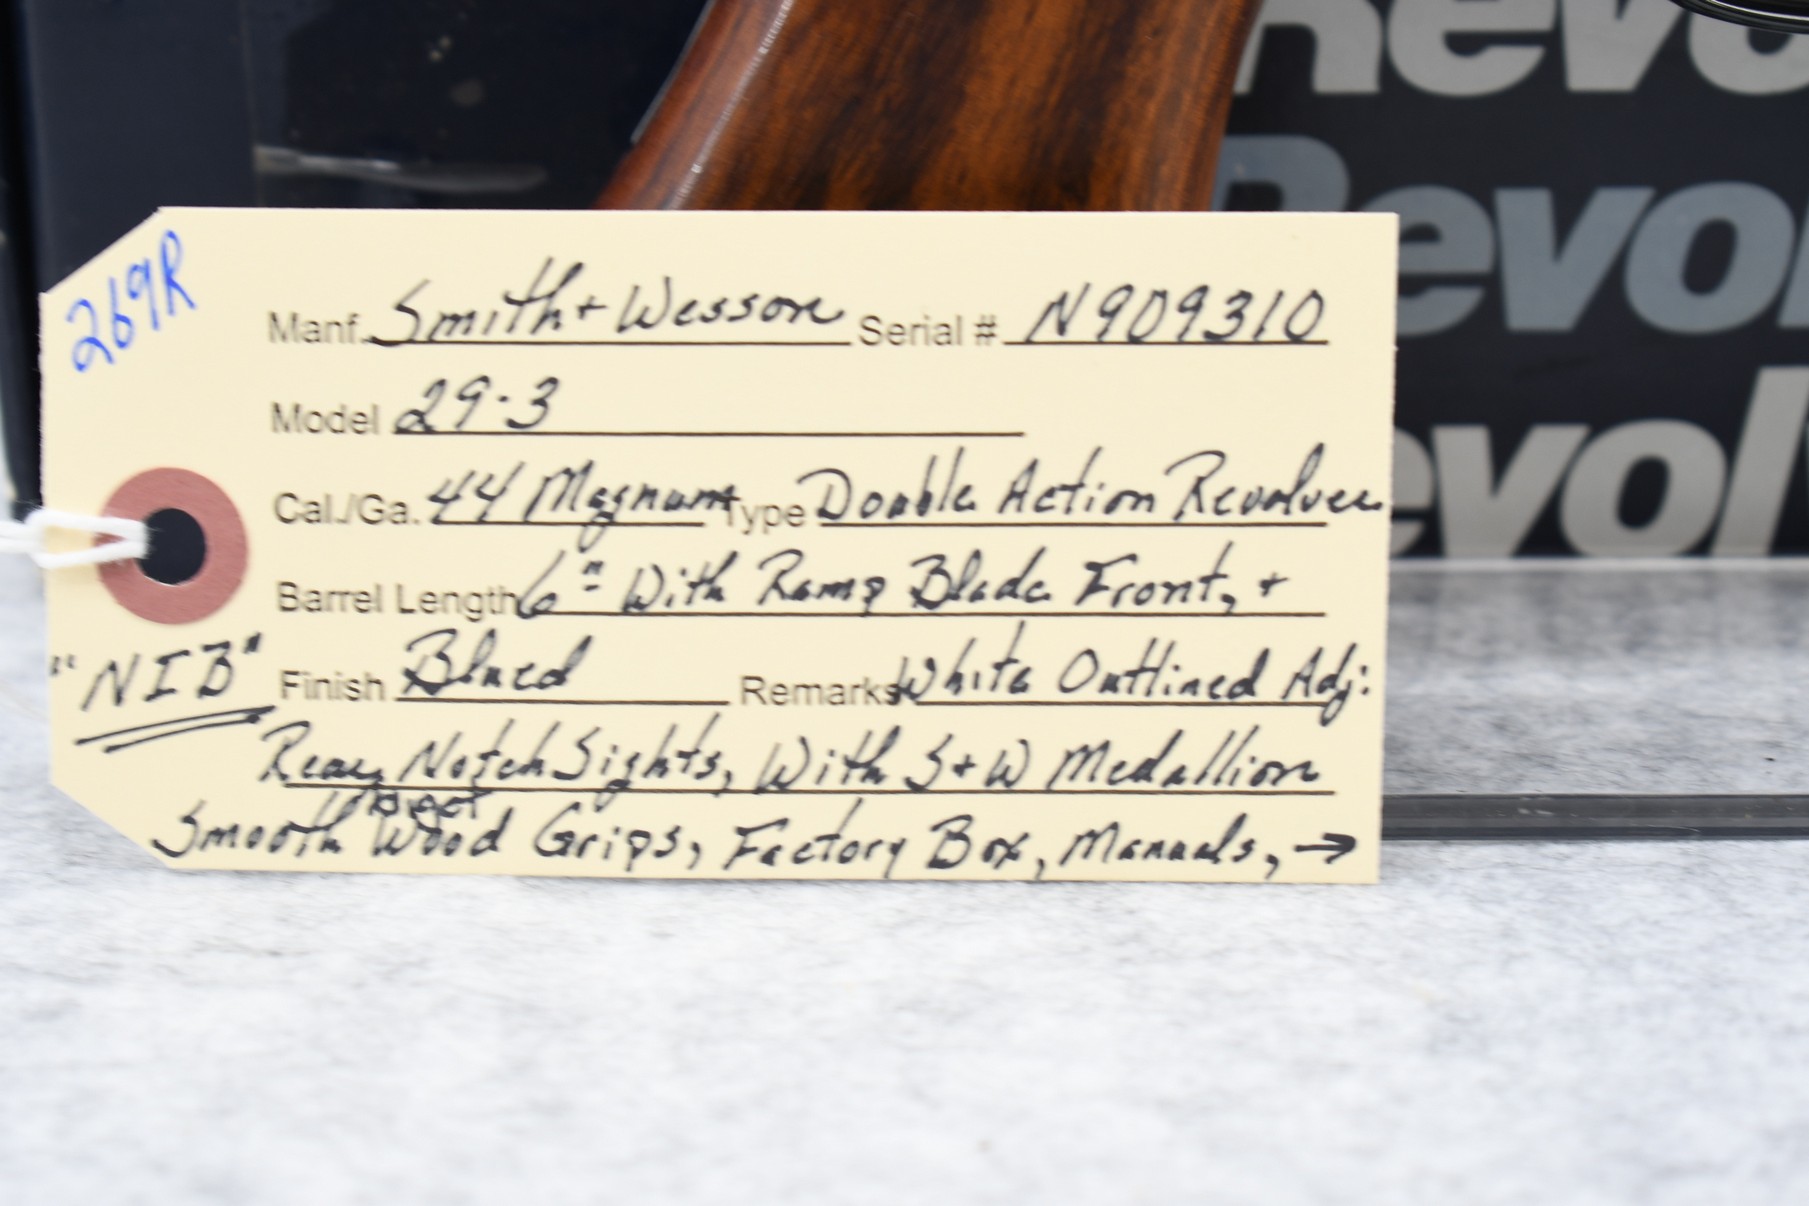 Revo
Revol
evol
269R
Manf. Smith + Wesson Serial # N909310
Model 29-3
Cal./Ga. 44 Magnum Type Double Action Revolver
Barrel Length 6" With Ramp Blade Front, +
"NIB" Finish Blued Remarks White Outlined Adj:
Rear Notch Sights, With S+W Medallion
Smooth Wood Grips, Factory Box, Manuals, →